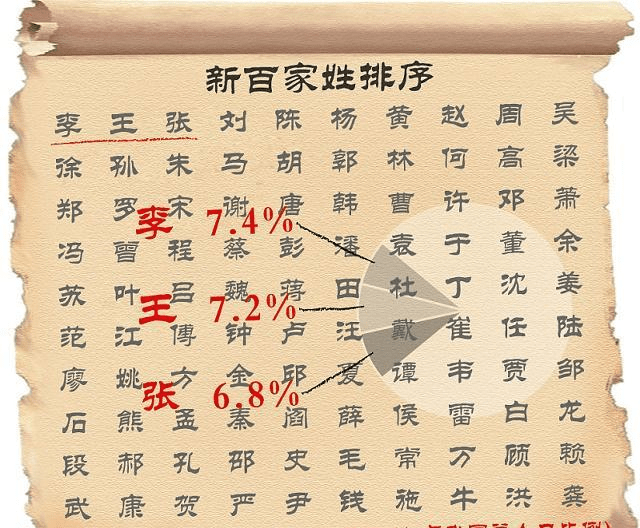 新百家姓排序
李 王 张 刘 陈 杨 黄 赵 周 吴
徐 孙 朱 马 胡 郭 林 何 高 梁
郑 罗 宋 谢 唐 韩 曹 许 邓 萧
冯 曾 程 蔡 彭 潘 袁 于 董 余
苏 叶 吕 魏 蒋 田 杜 丁 沈 姜
范 江 傅 钟 卢 汪 戴 崔 任 陆
廖 姚 方 金 邱 夏 谭 韦 贾 邹
石 熊 孟 秦 阎 薛 侯 雷 白 龙
段 郝 孔 邵 史 毛 常 万 顾 赖
武 康 贺 严 尹 钱 施 牛 洪 龚
李 7.4%
王 7.2%
张 6.8%